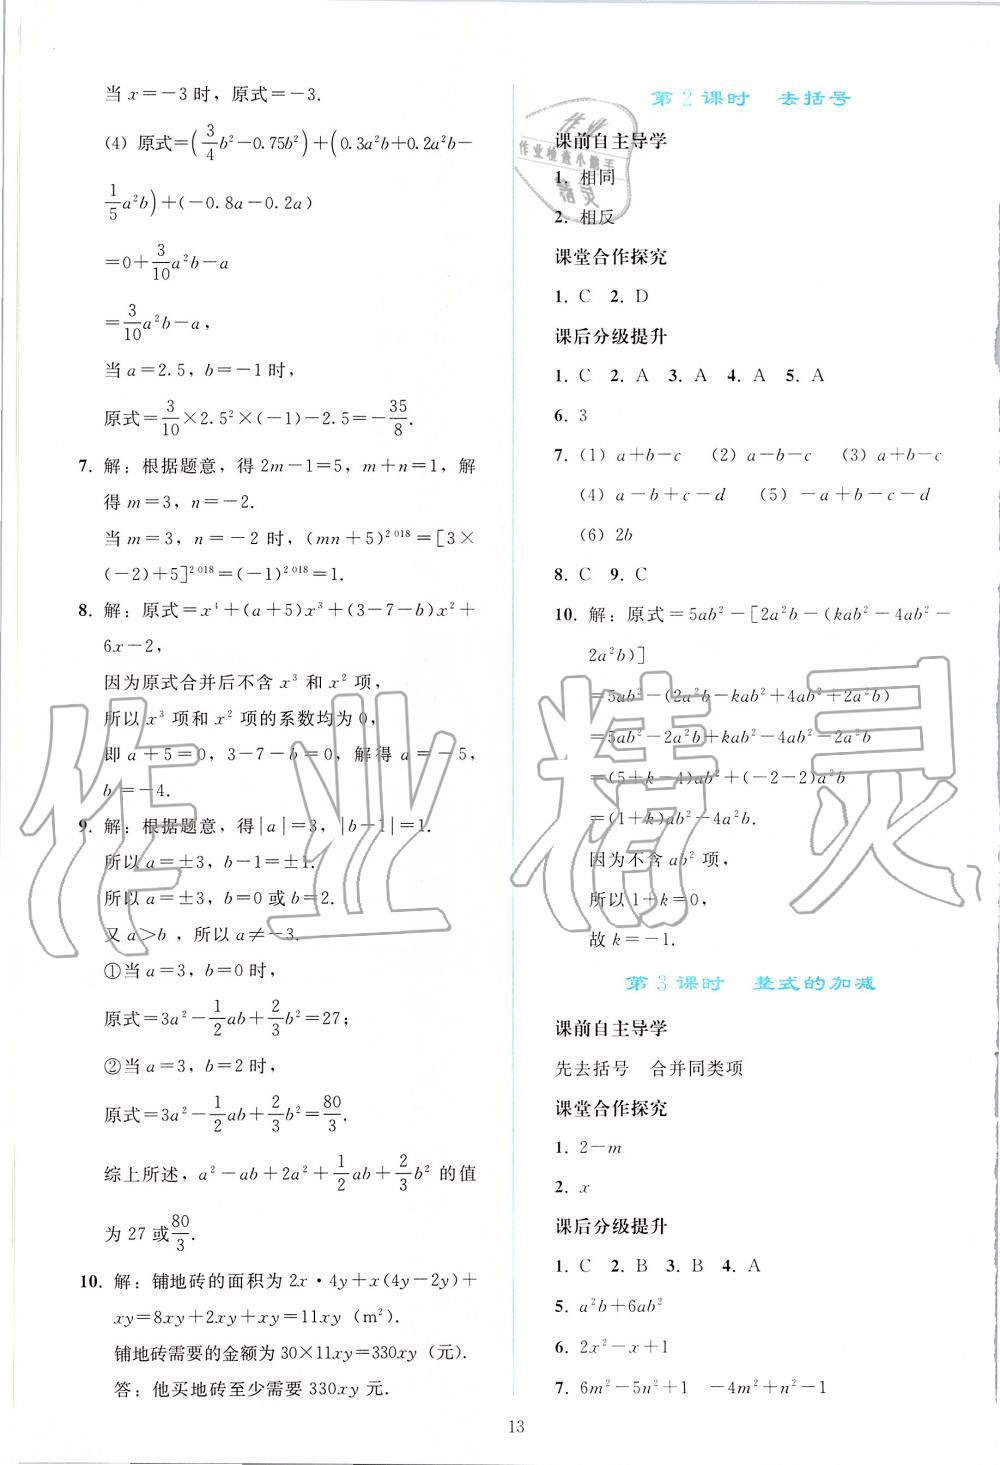 当 x=-3 时，原式=-3.
(4) 原式=(3/4b²-0.75b²)+(0.3a²b+0.2a²b-
1/5a²b)+(-0.8a-0.2a)
=0+3/10a²b-a
=3/10a²b-a，
当 a=2.5，b=-1 时，
原式=3/10×2.5²×(-1)-2.5=-35/8.
7. 解：根据题意，得 2m-1=5，m+n=1，解
得 m=3，n=-2.
当 m=3，n=-2 时，(mn+5)²⁰¹⁸=[3×
(-2)+5]²⁰¹⁸=(-1)²⁰¹⁸=1.
8. 解：原式=x⁴+(a+5)x³+(3-7-b)x²+
6x-2，
因为原式合并后不含 x³ 和 x² 项，
所以 x³ 项和 x² 项的系数均为 0，
即 a+5=0，3-7-b=0，解得 a=-5，
b=-4.
9. 解：根据题意，得|a|=3，|b-1|=1.
所以 a=±3，b-1=±1.
所以 a=±3，b=0 或 b=2.
又 a>b，所以 a≠-3.
①当 a=3，b=0 时，
原式=3a²-1/2ab+2/3b²=27；
②当 a=3，b=2 时，
原式=3a²-1/2ab+2/3b²=80/3.
综上所述，a²-ab+2a²+1/2ab+2/3b² 的值
为 27 或80/3.
10. 解：铺地砖的面积为 2x·4y+x(4y-2y)+
xy=8xy+2xy+xy=11xy (m²).
铺地砖需要的金额为 30×11xy=330xy (元).
答：他买地砖至少需要 330xy 元.
第 2 课时 去括号
课前自主导学
1. 相同
2. 相反
课堂合作探究
1. C 2. D
课后分级提升
1. C 2. A 3. A 4. A 5. A
6. 3
7. (1) a+b-c (2) a-b-c (3) a+b-c
(4) a-b+c-d (5) -a+b-c-d
(6) 2b
8. C 9. C
10. 解：原式=5ab²-[2a²b-(kab²-4ab²-
2a²b)]
=5ab²-(2a²b-kab²+4ab²+2a²b)
=5ab²-2a²b+kab²-4ab²-2a²b
=(5+k-4)ab²+(-2-2)a²b
=(1+k)ab²-4a²b.
因为不含 ab² 项，
所以 1+k=0，
故 k=-1.
第 3 课时 整式的加减
课前自主导学
先去括号 合并同类项
课堂合作探究
1. 2-m
2. x
课后分级提升
1. C 2. B 3. B 4. A
5. a²b+6ab²
6. 2x²-x+1
7. 6m²-5n²+1 -4m²+n²-1
13
作业精灵
作业
作业检查小帮手
精灵